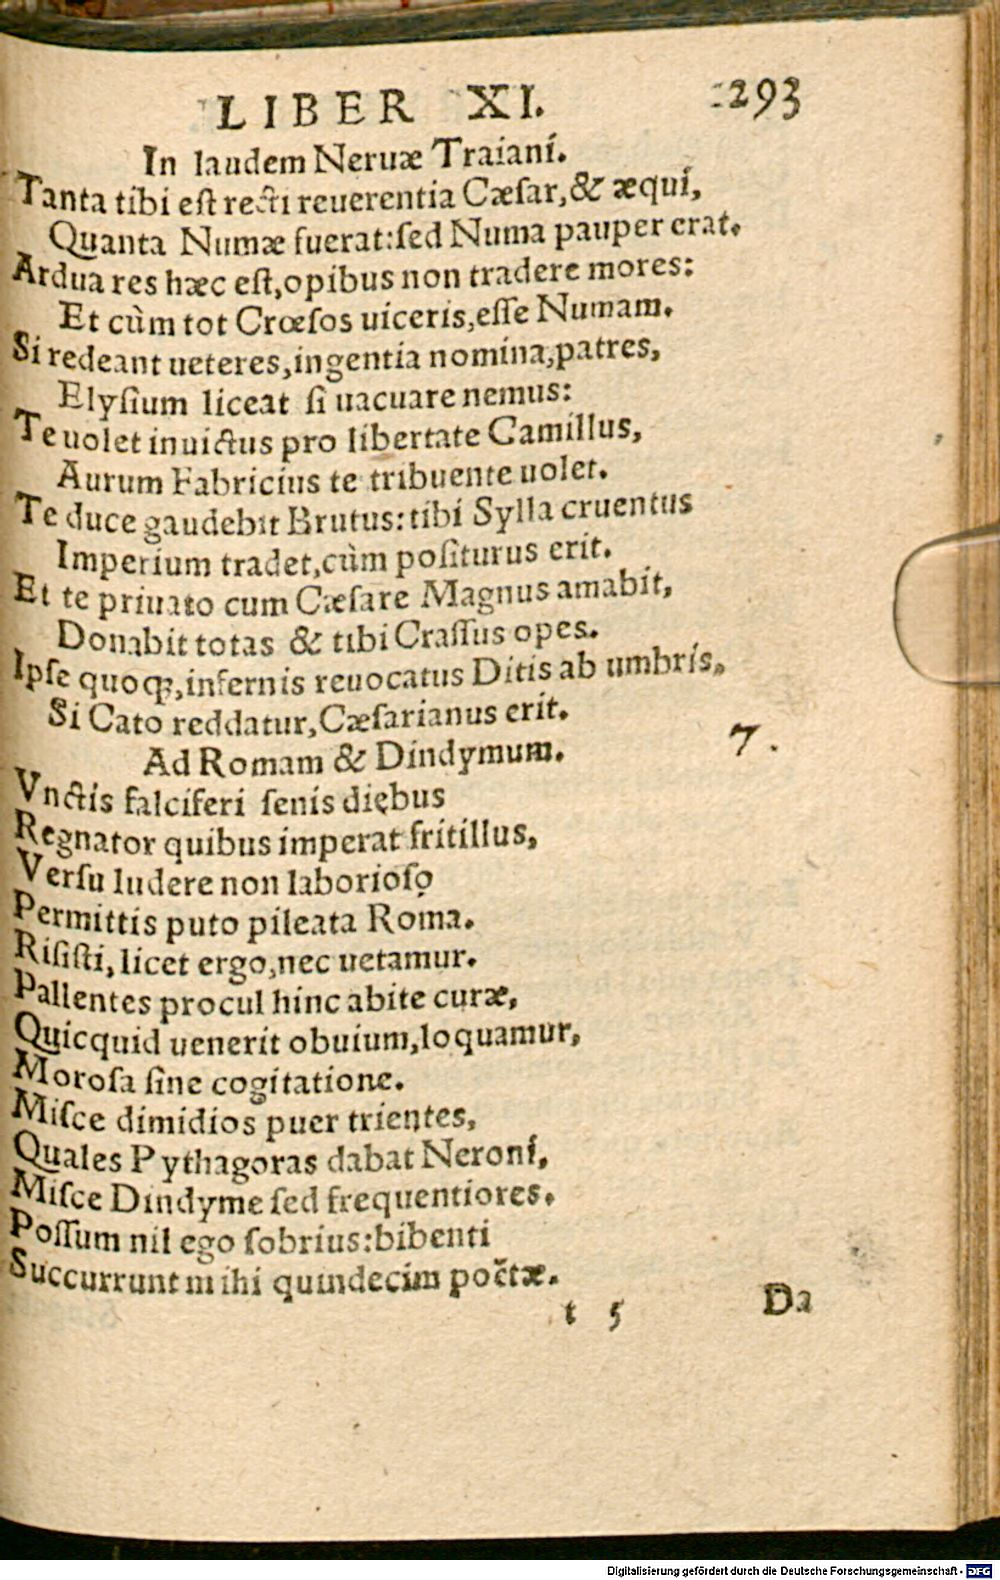 LIBER XI. 293
In laudem Neruæ Traiani.
Tanta tibi est recti reuerentia Cæsar, & æqui,
Quanta Numæ fuerat: sed Numa pauper erat.
Ardua res hæc est, opibus non tradere mores:
Et cùm tot Crœsos uiceris, esse Numam.
Si redeant ueteres, ingentia nomina, patres,
Elysium liceat si uacuare nemus:
Te uolet inuictus pro libertate Camillus,
Aurum Fabricius te tribuente uolet.
Te duce gaudebit Brutus: tibi Sylla cruentus
Imperium tradet, cùm positurus erit.
Et te priuato cum Cæsare Magnus amabit,
Donabit totas & tibi Crassus opes.
Ipse quoq;, infernis reuocatus Ditis ab umbris,
Si Cato reddatur, Cæsarianus erit.
Ad Romam & Dindymum. 7.
Vnctis falciferi senis diebus
Regnator quibus imperat fritillus,
Versu ludere non laborioso
Permittis puto pileata Roma.
Risisti, licet ergo, nec uetamur.
Pallentes procul hinc abite curæ,
Quicquid uenerit obuium, loquamur,
Morosa sine cogitatione.
Misce dimidios puer trientes,
Quales Pythagoras dabat Neroni,
Misce Dindyme sed frequentiores.
Possum nil ego sobrius: bibenti
Succurrunt mihi quindecim poëtæ.
t 5 Da
Digitalisierung gefördert durch die Deutsche Forschungsgemeinschaft - DFG